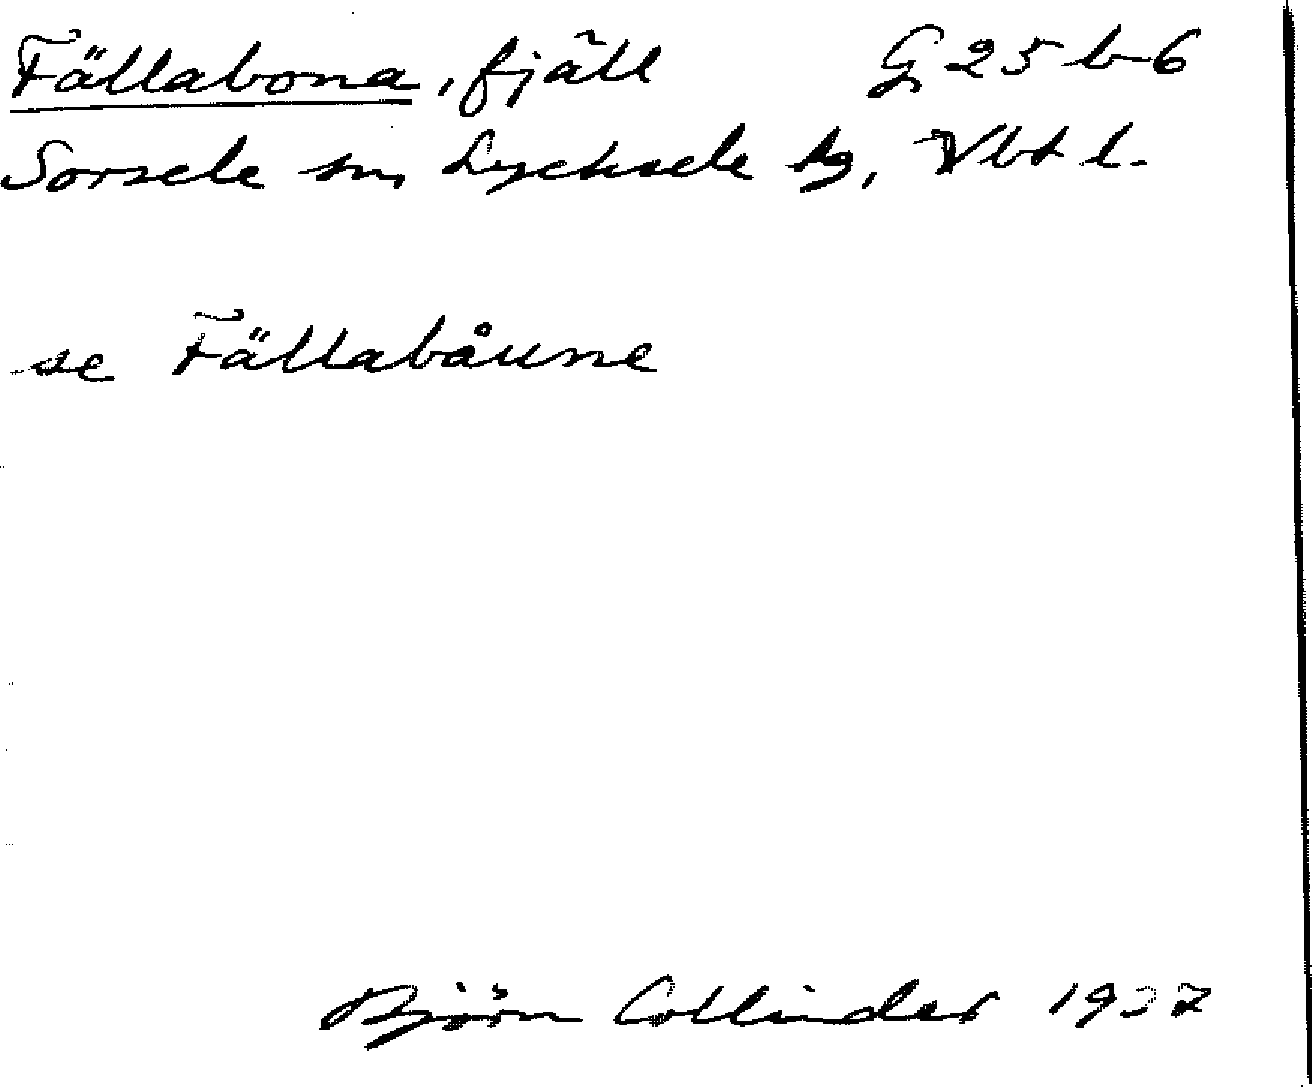 Fällabona, fjäll G 25 b-6
Sorsele sn, Lycksele lg, Vbt l.
se Fällabåune
Björn Collinder 1937